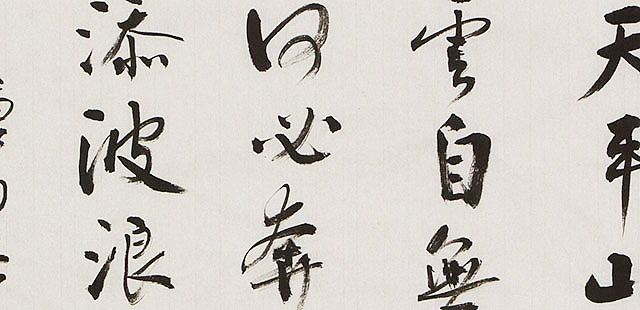 天平山
雲自無
何必奔
添波浪